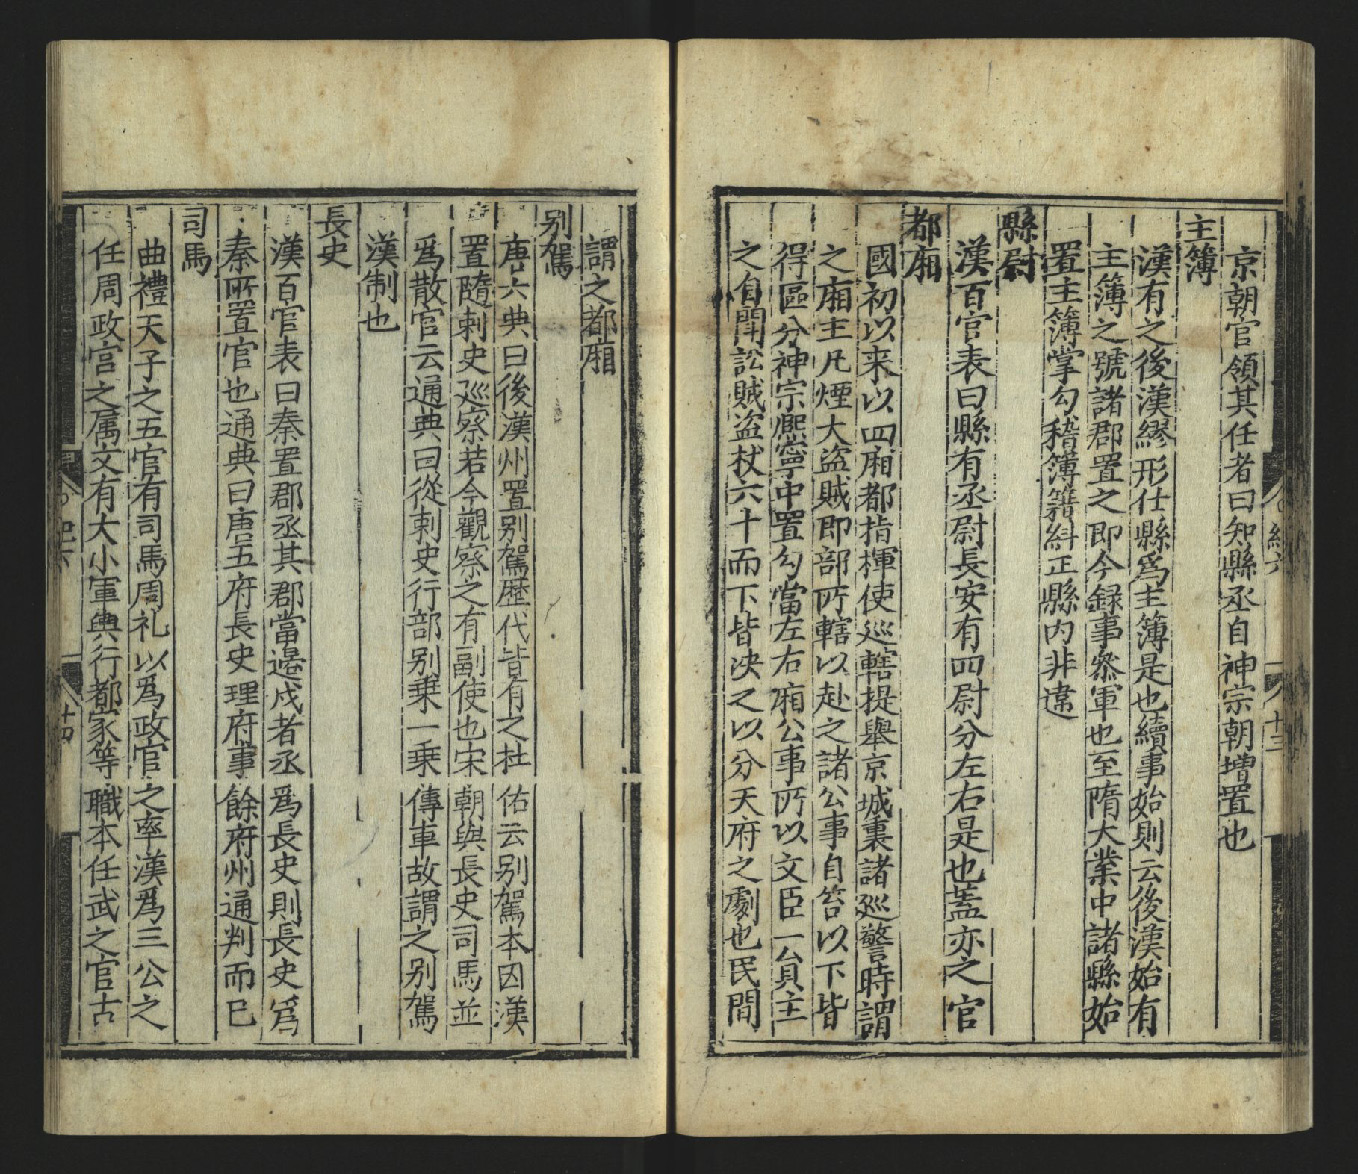 京朝官領其任者曰知縣丞自神宗朝增置也
主簿
漢有之後漢繆形仕縣爲主簿是也續事始則云後漢始有
主簿之號諸郡置之即今録事叅軍也至隋大業中諸縣始
置主簿掌勾稽簿籍糾正縣内非違
縣尉
漢百官表曰縣有丞尉長安有四尉分左右是也蓋亦之官
都廂
國初以来以四廂都指揮使廵轄提舉京城裏諸廵警時謂
之廂主凡煙火盗賊即部所轄以赴之諸公事自笞以下皆
得區分神宗熈寧中置勾當左右廂公事所以文臣一員主
之自閧訟賊盗杖六十而下皆决之以分天府之劇也民間
謂之都廂
别駕
唐六典曰後漢州置别駕歴代皆有之杜佑云别駕本因漢
置隨刺史廵察若今觀察之有副使也宋朝與長史司馬並
爲散官云通典曰從刺史行部别乗一乗傳車故謂之别駕
漢制也
長史
漢百官表曰秦置郡丞其郡當邉戍者丞爲長史則長史爲
秦所置官也通典曰唐五府長史理府事餘府州通判而已
司馬
曲禮天子之五官有司馬周礼以爲政官之率漢爲三公之
任周政官之属文有大小軍輿行都家等職本任武之官古
紀六
十三
十四